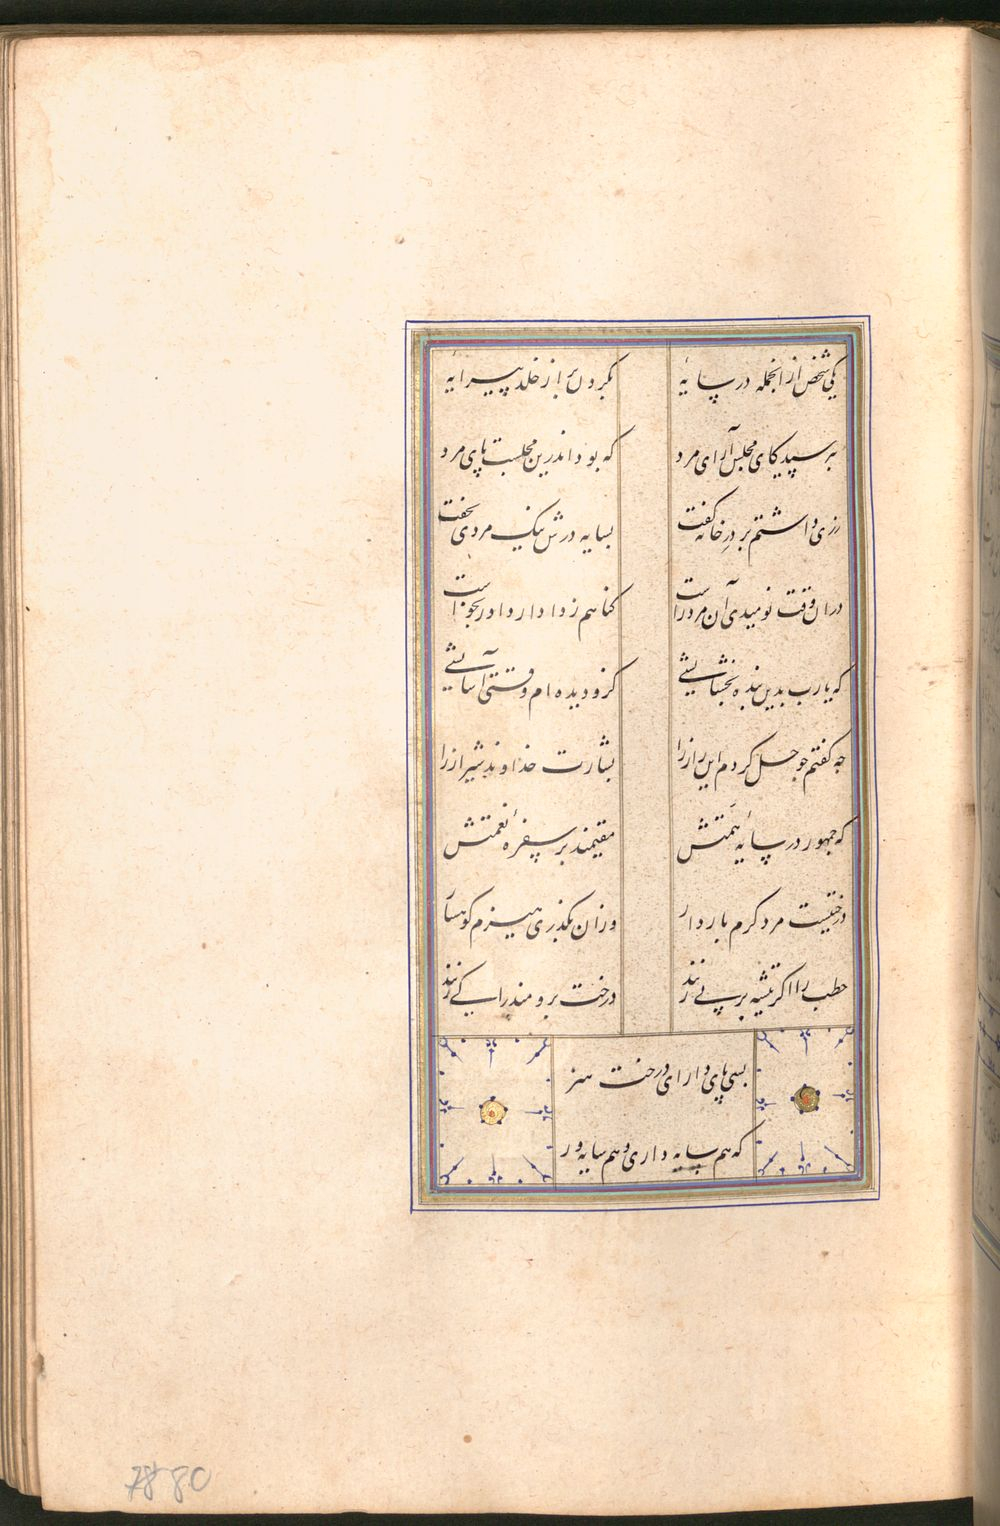 یکی شخص ازانجمله در سایهٔ	بگردن بر از خلد پیرایهٔ
بپرسید کای مجلس آرای مرد	که بود اندرین مجلست پای مرد
رزی داشتم بر در خانه گفت	بسایه درش نیک مردی بخفت
دران وقت نومیدی آن مرد راست	کناهم ز دادار داور بخواست
که یارب بدین بنده بخشایشی	کزو دیده‌ام وقتی آسایشی
چه گفتم چو حل کردم این راز را	بشارت خداوند شیراز را
که جمهور در سایهٔ همتش	مقیمند بر سفرهٔ نعمتش
درختیست مرد کرم باردار	وزان بگذری هیزم کوهسار
حطب را اگر تیشه بر پی زنند	درخت برومند را کی زنند
بسی پای دار ای درخت هنر
که هم سایه داری و هم سایه ور
7880